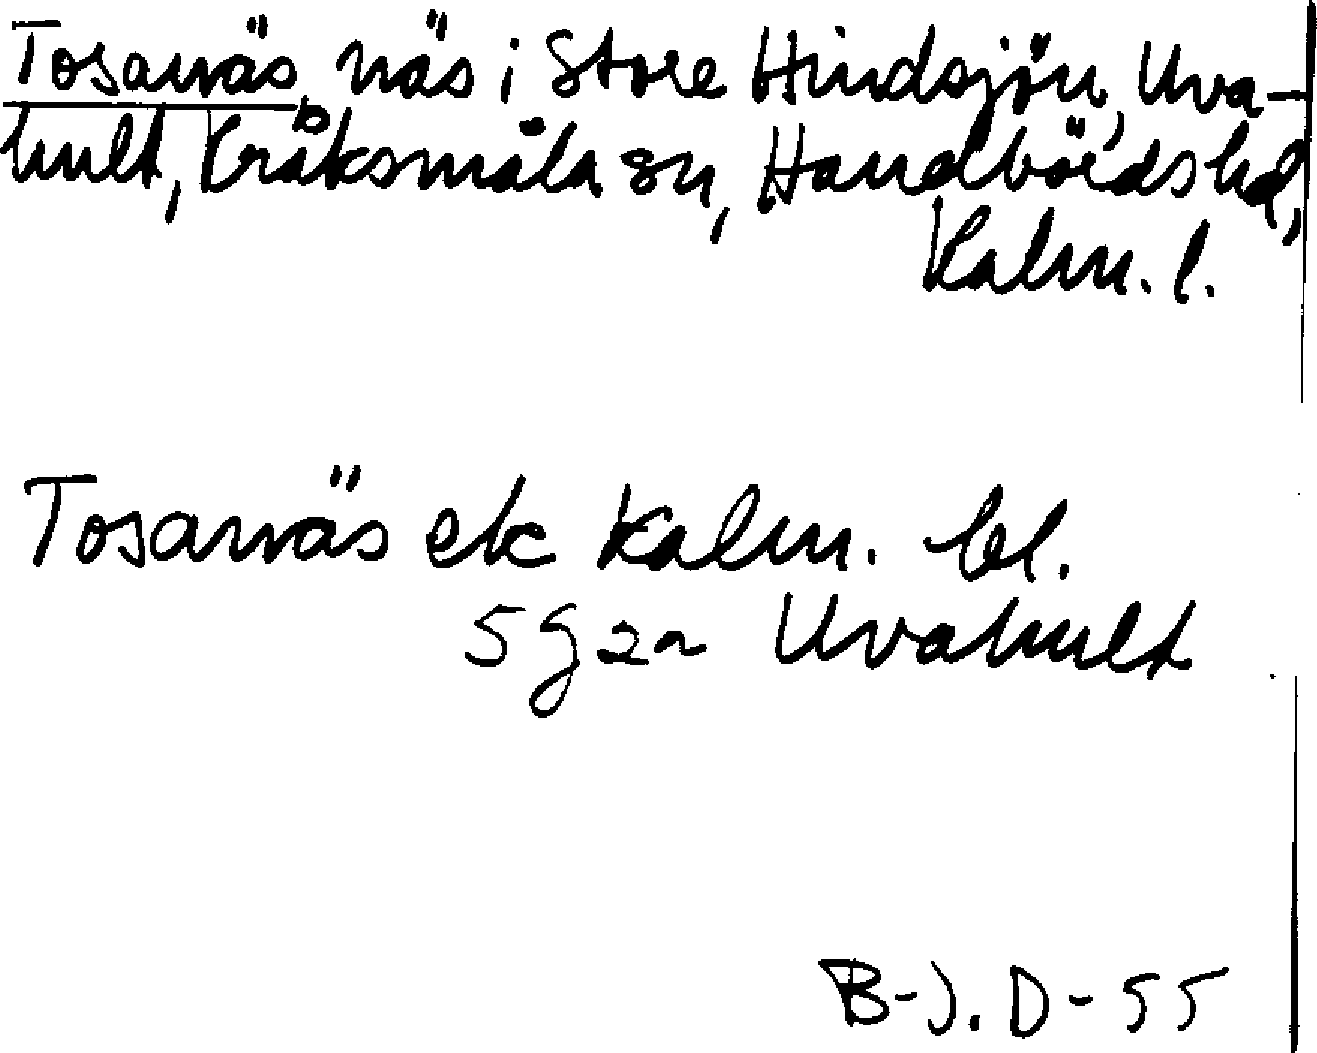 Tosanäs, näs i Store Hindsjön, Uva-
hult, Kråksmåla sn, Handbörds hd,
Kalm. l.
Tosanäs ek Kalm. bl.
5 g 2 a Uvahult
B-J. D-55